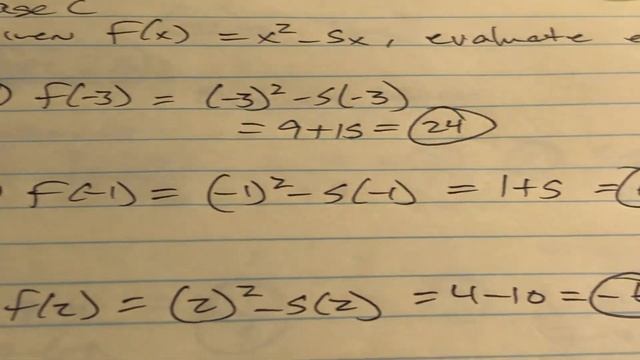 ase C
iven f(x) = x² - 5x, evaluate e
) f(-3) = (-3)² - 5(-3)
= 9 + 15 = 24
) f(-1) = (-1)² - 5(-1) = 1 + 5 =
f(2) = (2)² - 5(2) = 4 - 10 = -